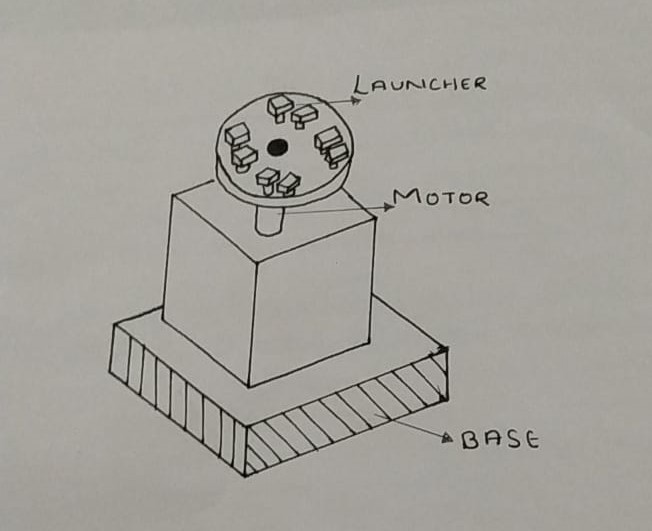 LAUNCHER
MOTOR
BASE